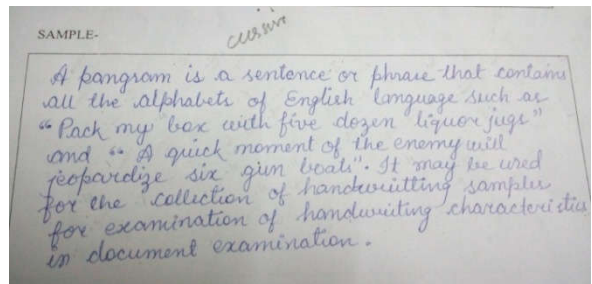 cursive
SAMPLE-
A pangram is a sentence or phrase that contains
all the alphabets of English language such as
"Pack my box with five dozen liquor jugs"
and "A quick moment of the enemy will
jeopardize six gun boats". It may be used
for the collection of handwritting samples
for examination of handwriting characteristics
in document examination.